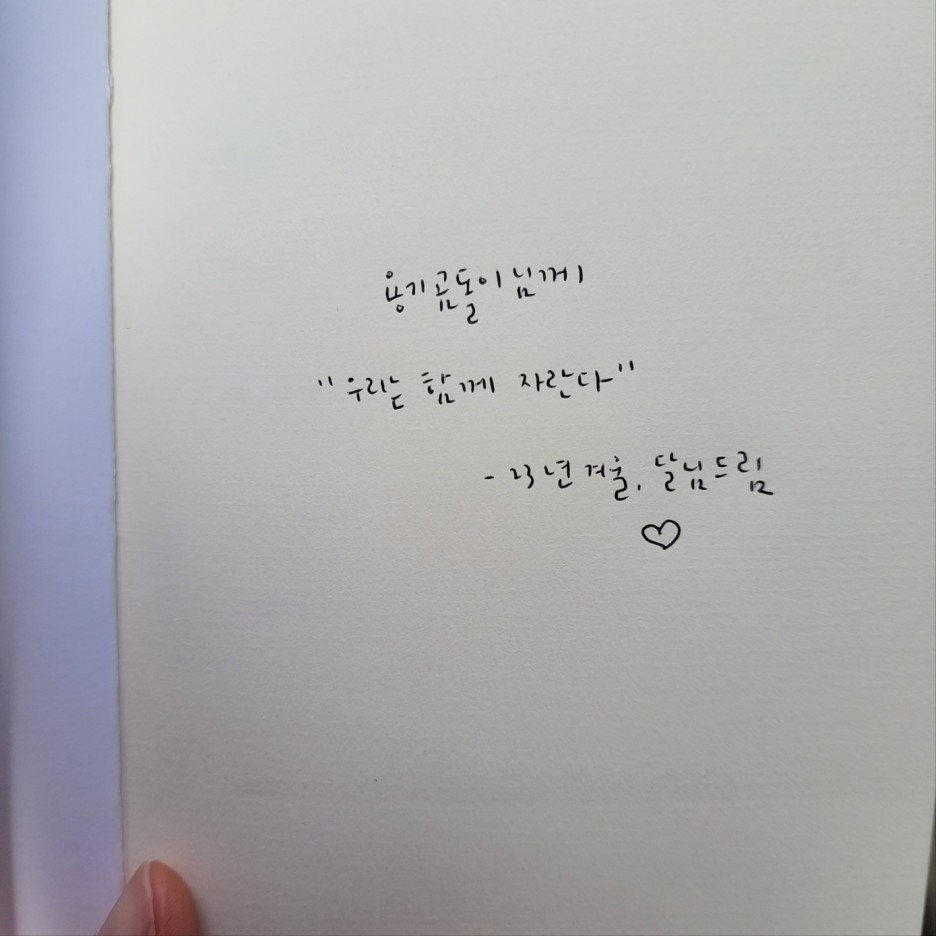 용기곰돌이님께
"우리는 함께 자란다"
- 23년 겨울, 달님드림
♡